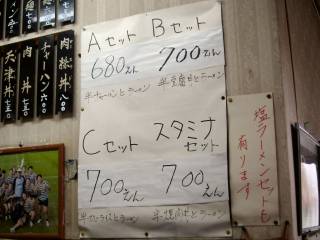 Aセット
680えん
半チャーハンとラーメン
Bセット
700えん
Cセット
700えん
半カレーライスとラーメン
スタミナ
セット
700えん
半焼肉丼とラーメン
塩ラーメンセットも
有ります
肉絲丼 八〇〇
チャーハン
肉丼
天津丼 七五〇